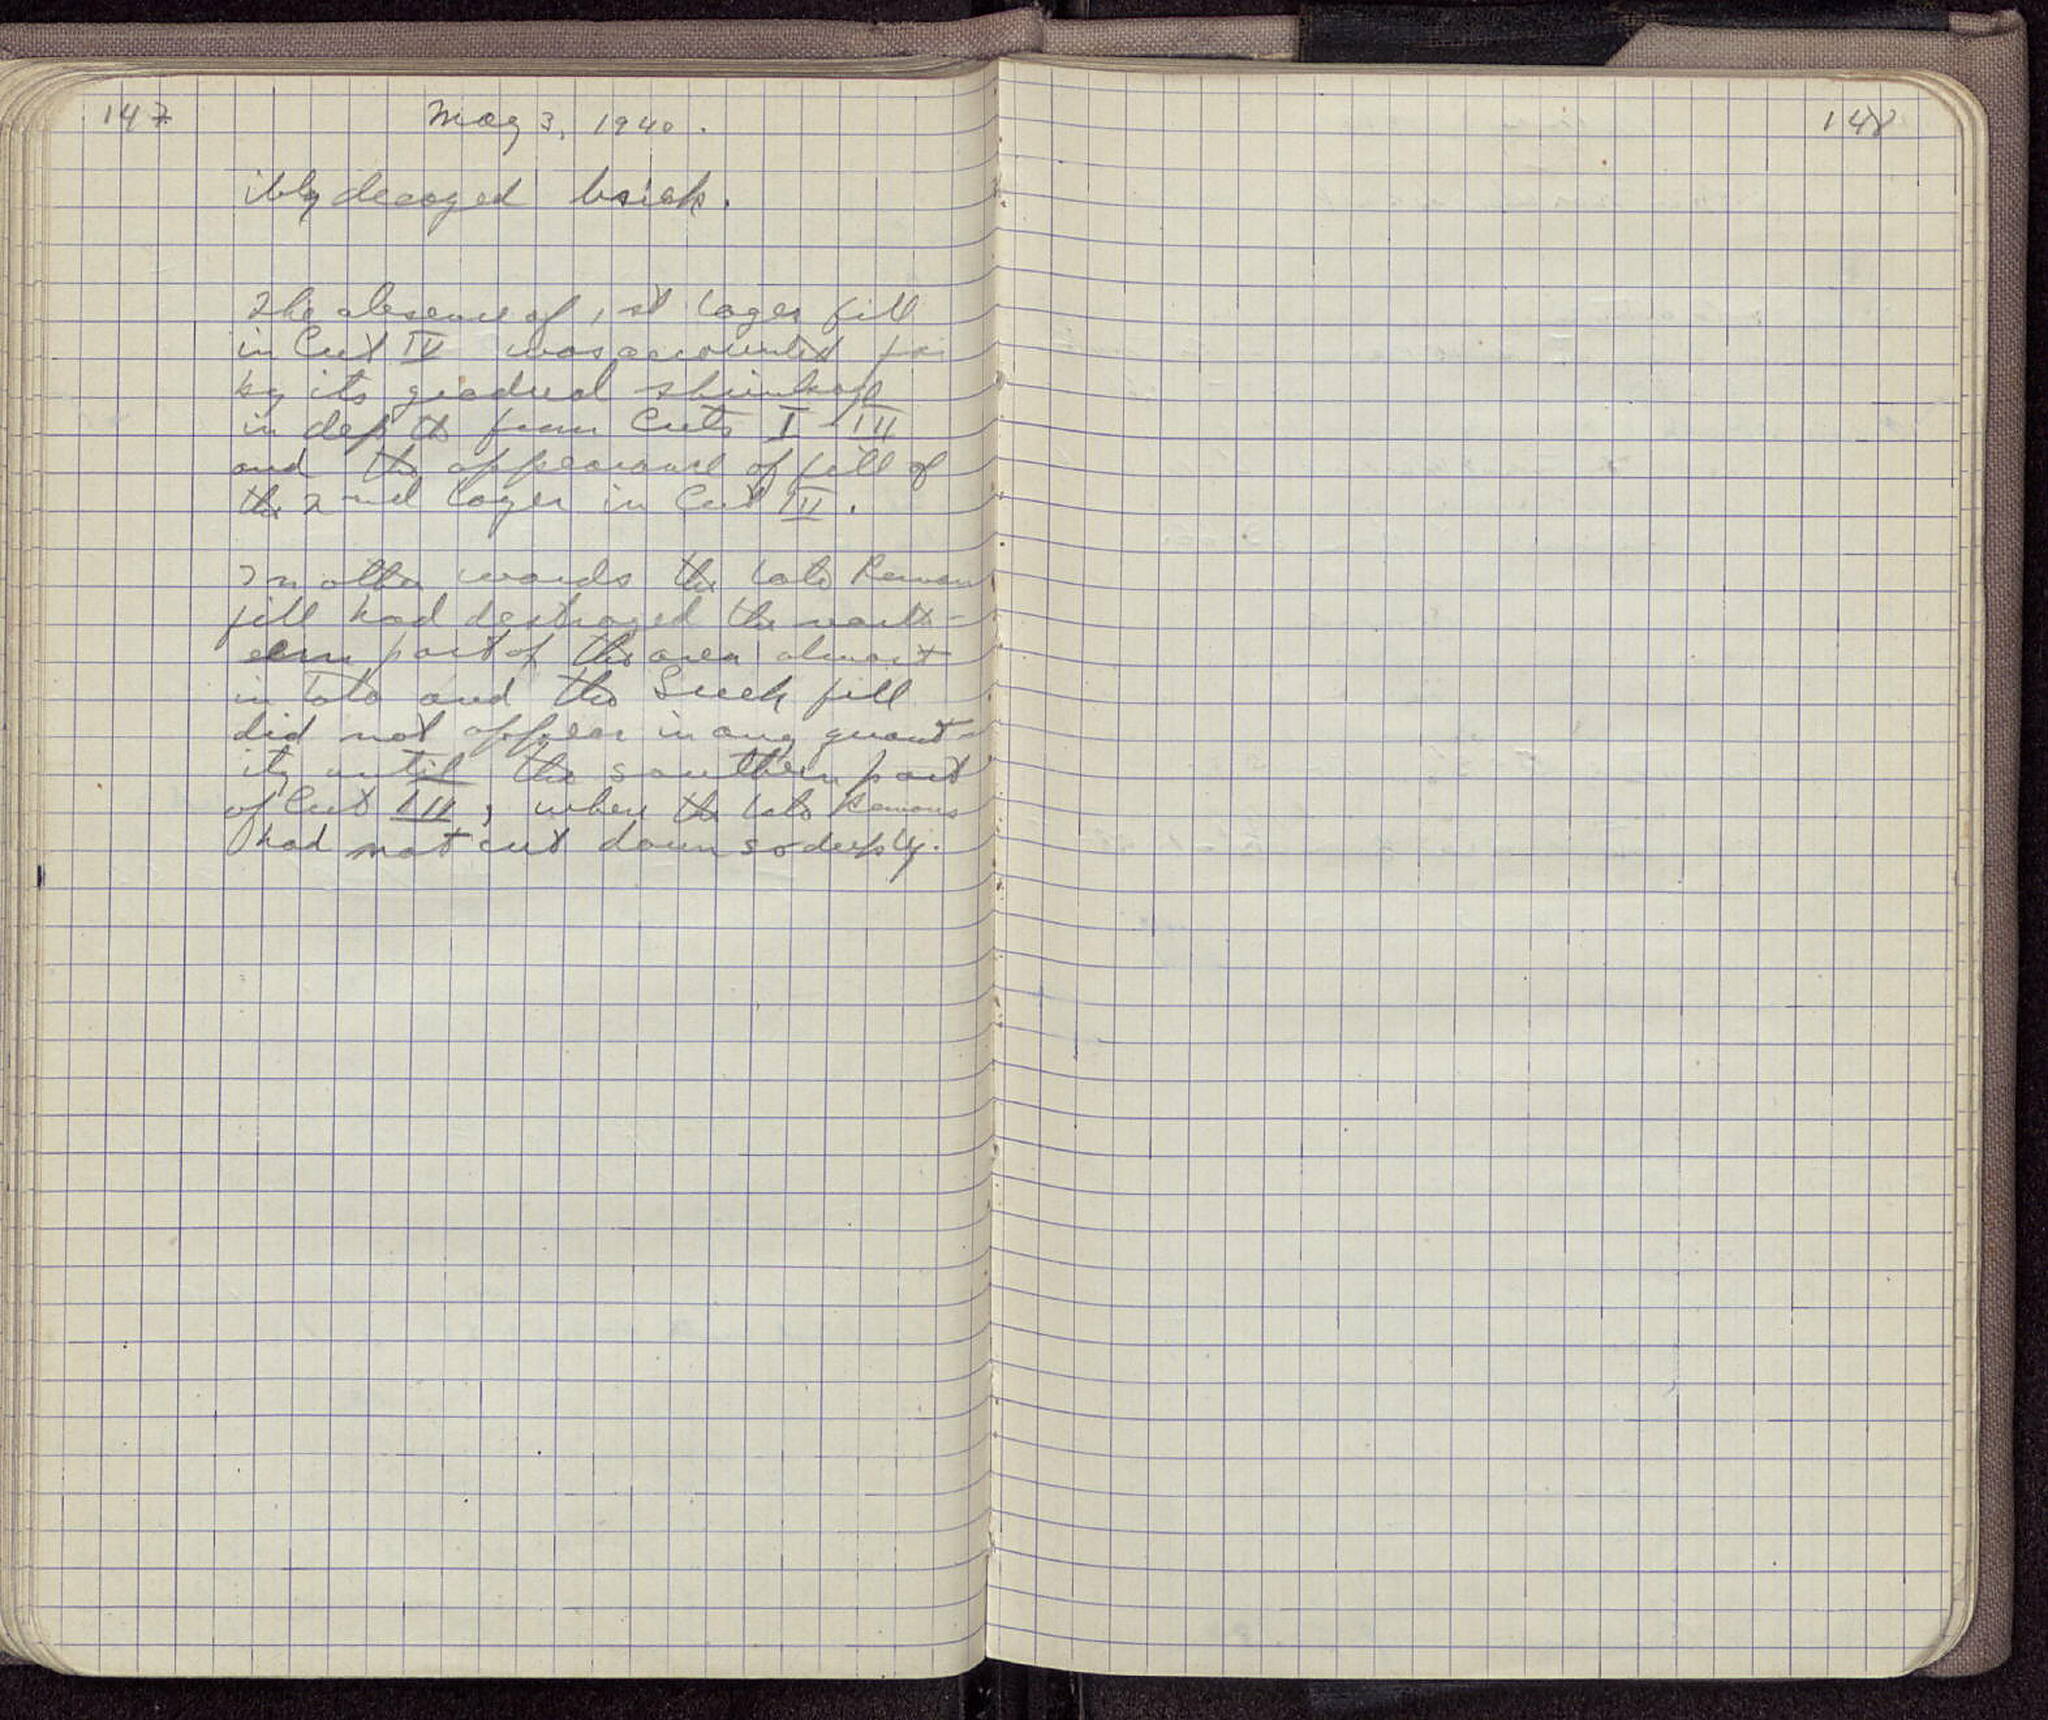 147
May 3, 1940.
ibly decayed brick.
The absence of 1st layer fill
in Cut IV was accounted for
by its gradual shrinkage
in depth from Cuts I - III
and the appearance of fill of
the 2nd layer in Cut III.
In other words the late Roman
fill had destroyed the north-
ern part of the area almost
in toto and the Greek fill
did not appear in any quant-
ity until the southern part
of Cut III, when the late Romans
had not cut down so deeply.
148